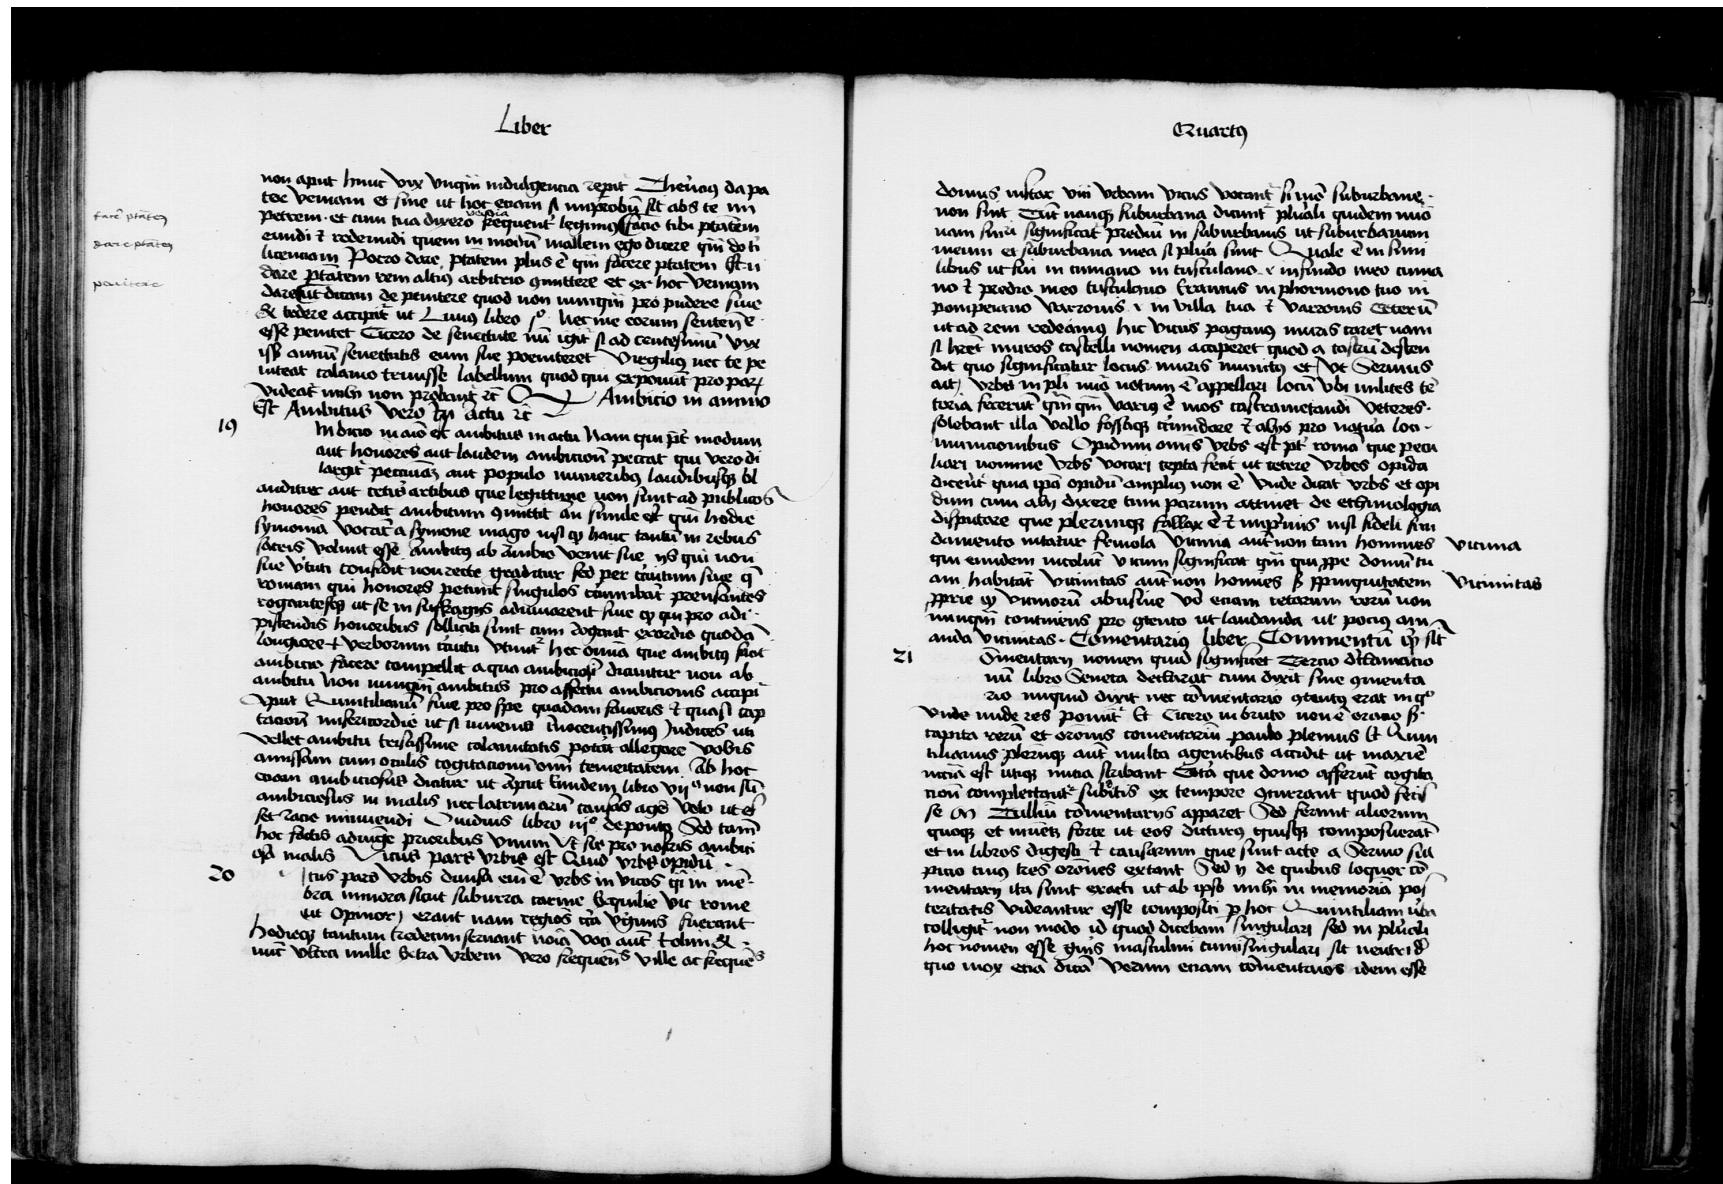 Liber
non aput hunc vix unqm indulgencia repit Therencius da pa
ter veniam et sine ut hoc eciam si improbu sit abs te im
petrem et cum tua dixero venia frequent legimus facio tibi ptatem
eundi et redeundi quem in modu mallem ego dicere qm do ti
licenciam Porro dare ptatem plus e qm facere ptatem
dare ptatem rem altius arbitrio pmittere et ex hoc veniam
dare ut dicam de penitere quod non nunqm pro pudere sive
tedere accipit ut Livius libro po nec me eorum senten e
esse penitet Cicero de senectute nu igit si ad centesimu vix
isset annu senectutis eum sue poeniteret Virgilius nec te pe
niteat calamo trivisse labellum quod qui exponut pro par
videat mihi non probant etc Ambicio in animo
Est Ambitus vero in actu etc
facere ptatem
dare ptatem
penitere
19
Mbicio in aio est ambitus in actu Nam qui pt modum
aut honores aut laudem ambicion peccat qui vero di
largit pecunia aut populo muneribus laudibusque bl
auditur aut ceteris artibus que legittime non sunt ad publicos
honores pendit ambitum committit an simile est qm hodie
symonia vocat a symone mago nisi quod hanc tantu in rebus
sacris volunt esse Ambitus ab ambio venit sive is qui non
sue vtuti confidit non recte graditur sed per circuitum sive q
romam qui honores petunt singulos circuibat prensantes
rogantesque ut se in suffragiis adiuvarent sive qui pro adi
piscendis honoribus solliciti sunt cum rogant exordio quoda
longiore et verborum circuitu utuntur hec omnia que ambitus fiat
ambicio facere compellit a qua ambiciosi dicuntur non ab
ambitu non nunqm ambitus pro affectu ambicionis accipi
aput Quintilianu sive pro spe quadam favoris et quasi cap
tacion misericordie ut si iuvenis innocentissimus Iudices uti
vellet ambitu tristissime calamitatis potat allegare vobis
amissam cum oculis cogitacionu omn temeritatem Ab hoc
eciam ambiciosus dicitur ut aput Eundem libro vii non su
ambiciosus in malis nec lacrimaru causas ages volo ut es
set racio minuendi Ovidius libro iiio de ponto Sed tam
hoc factis adiunge prioribus unum Ut sis pro nostris ambici
osa malis Vicus pars vrbis est Quid vrbs opidu
20
Icus pars vrbis divisa eni e vrbs in vicos qsi in me
bra minora sicut suburra carine Exquilie vic rome
ut Opinor erant nam regios circa fuerant
hodieque tantum tredecim servant noia voci aut et olim et
nuc ultra mille Extra vrbem vero frequens ville ac frequens
Quartus
domus instar vni vrbam vicus vocant si nec suburbane
non sint Tuc namque suburbana dicunt plurali quidem nuo
nam significat prediu in suburbanis ut suburbanum
meum et suburbana mea si plura sunt Quale e in simi
libus ut sui in cumano in tusculano et in fundo meo cuma
no et predio meo tusculano Eramus in phormono tuo in
pompeiano Varronis et in villa tua et Varronis Ceteru
ut ad rem redeamus hic vicus paganus muris caret nam
si hret muros castelli nomen acciperet quod a castru descen
dit quo significatur locus muris munitus et ut Servius
ait Vrbes in pli nuo notum e appellari locu vbi milites te
toria fecerut qm qm varius e mos castrametandi Veteres
solebant illa vallo fossaque circumdare et aliis pro natura loci
municionibus Opidum omnis vrbs est pt roma que pecu
liari nomine vrbs vocari cepta ferit ut cetere vrbes opida
dicerent quia ipa opidu amplius non e Unde dicat vrbs et opi
dum cum alii dixere tum parum attinet de ethimologia
disputare que plerumque fallax e et inprimis nisi fideli fun
damento nitatur frivola Vicinia aut non tam homines
qui eiundem incolut vicum significat qm qui ppe domu tu
am habitat Vicinitas aut non homines sed ppinquitatem
pprie que vicinoru abusive vel eciam ceterarum reru non
nunqm continens pro contento ut laudanda vel pocius am
anda vicinitas Comentarius liber Commentu sit
vicinia
vicinitas
21
Omentarii nomen quid significet Tercio declamacio
nu libro Seneca declarat cum dixit sine commenta
rio nunquid dixit nec comentario contentus erat in quo
unde nude res ponunt Et Cicero in bruto non e oracio
capita reru et oronis comentariu paulo plenius Et Quin
tilianus plerumque aut multa agentibus accidit ut maxie
necia est utique inicia scribant Cetera que domo afferut cogita
cion complectantur subitis ex tempore occurrant quod fecis
se M Tulliu comentariis apparet Sed ferunt aliorum
quoque et inventi forte ut eos dicturus quisque composuerat
et in libros digesti et causarum que sunt acte a Servio sul
picio cuius tres orones extant Sed ii de quibus loquor co
mentarii ita sunt exacti ut ab ipso mihi in memoria pos
teritatis videantur esse compositi p hoc Quintiliani vba
colligit non modo id quod dicebam singulari sed in plurali
hoc nomen esse gnis masculini cum singulari sit neutri de
quo mox etia dica Verum eciam comentarios idem esse